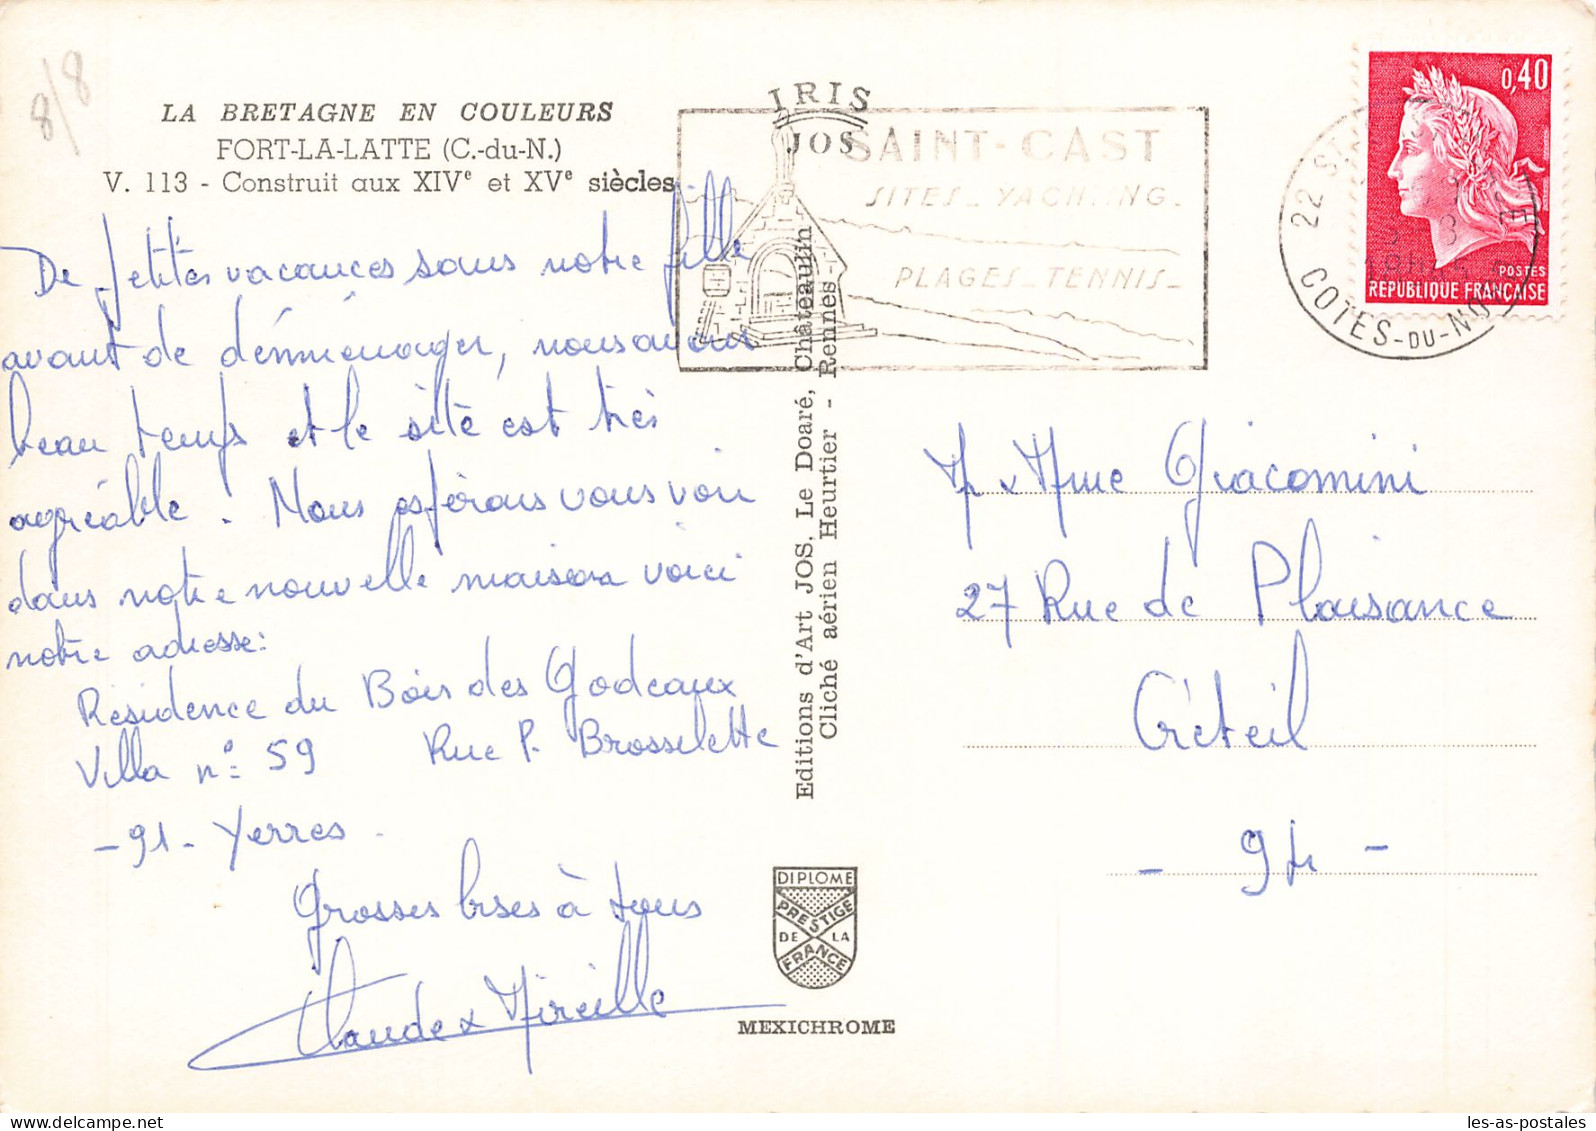 8/8
LA BRETAGNE EN COULEURS
FORT-LA-LATTE (C.-du-N.)
V. 113 - Construit aux XIVe et XVe siècles
De petites vacances sans notre fille
avant de déménager, nous avons
beau temps et le site est très
agréable. Nous espérons vous voir
dans notre nouvelle maison voici
notre adresse:
Résidence du Bois des Godeaux
Villa n° 59 Rue P. Brosselette
- 91 - Yerres.
Grosses bises à tous
Claude & Mireille
IRIS
JOS
SAINT-CAST
SITES - YACHTING -
PLAGES - TENNIS -
Editions d'Art JOS, Le Doaré, Châteaulin
Cliché aérien Heurtier - Rennes
DIPLOME
PRESTIGE
DE LA
FRANCE
MEXICHROME
0,40
POSTES
REPUBLIQUE FRANÇAISE
22 ST
COTES-DU-NORD
M & Mme Giacomini
27 Rue de Plaisance
Créteil
- 94 -
les-as-postales